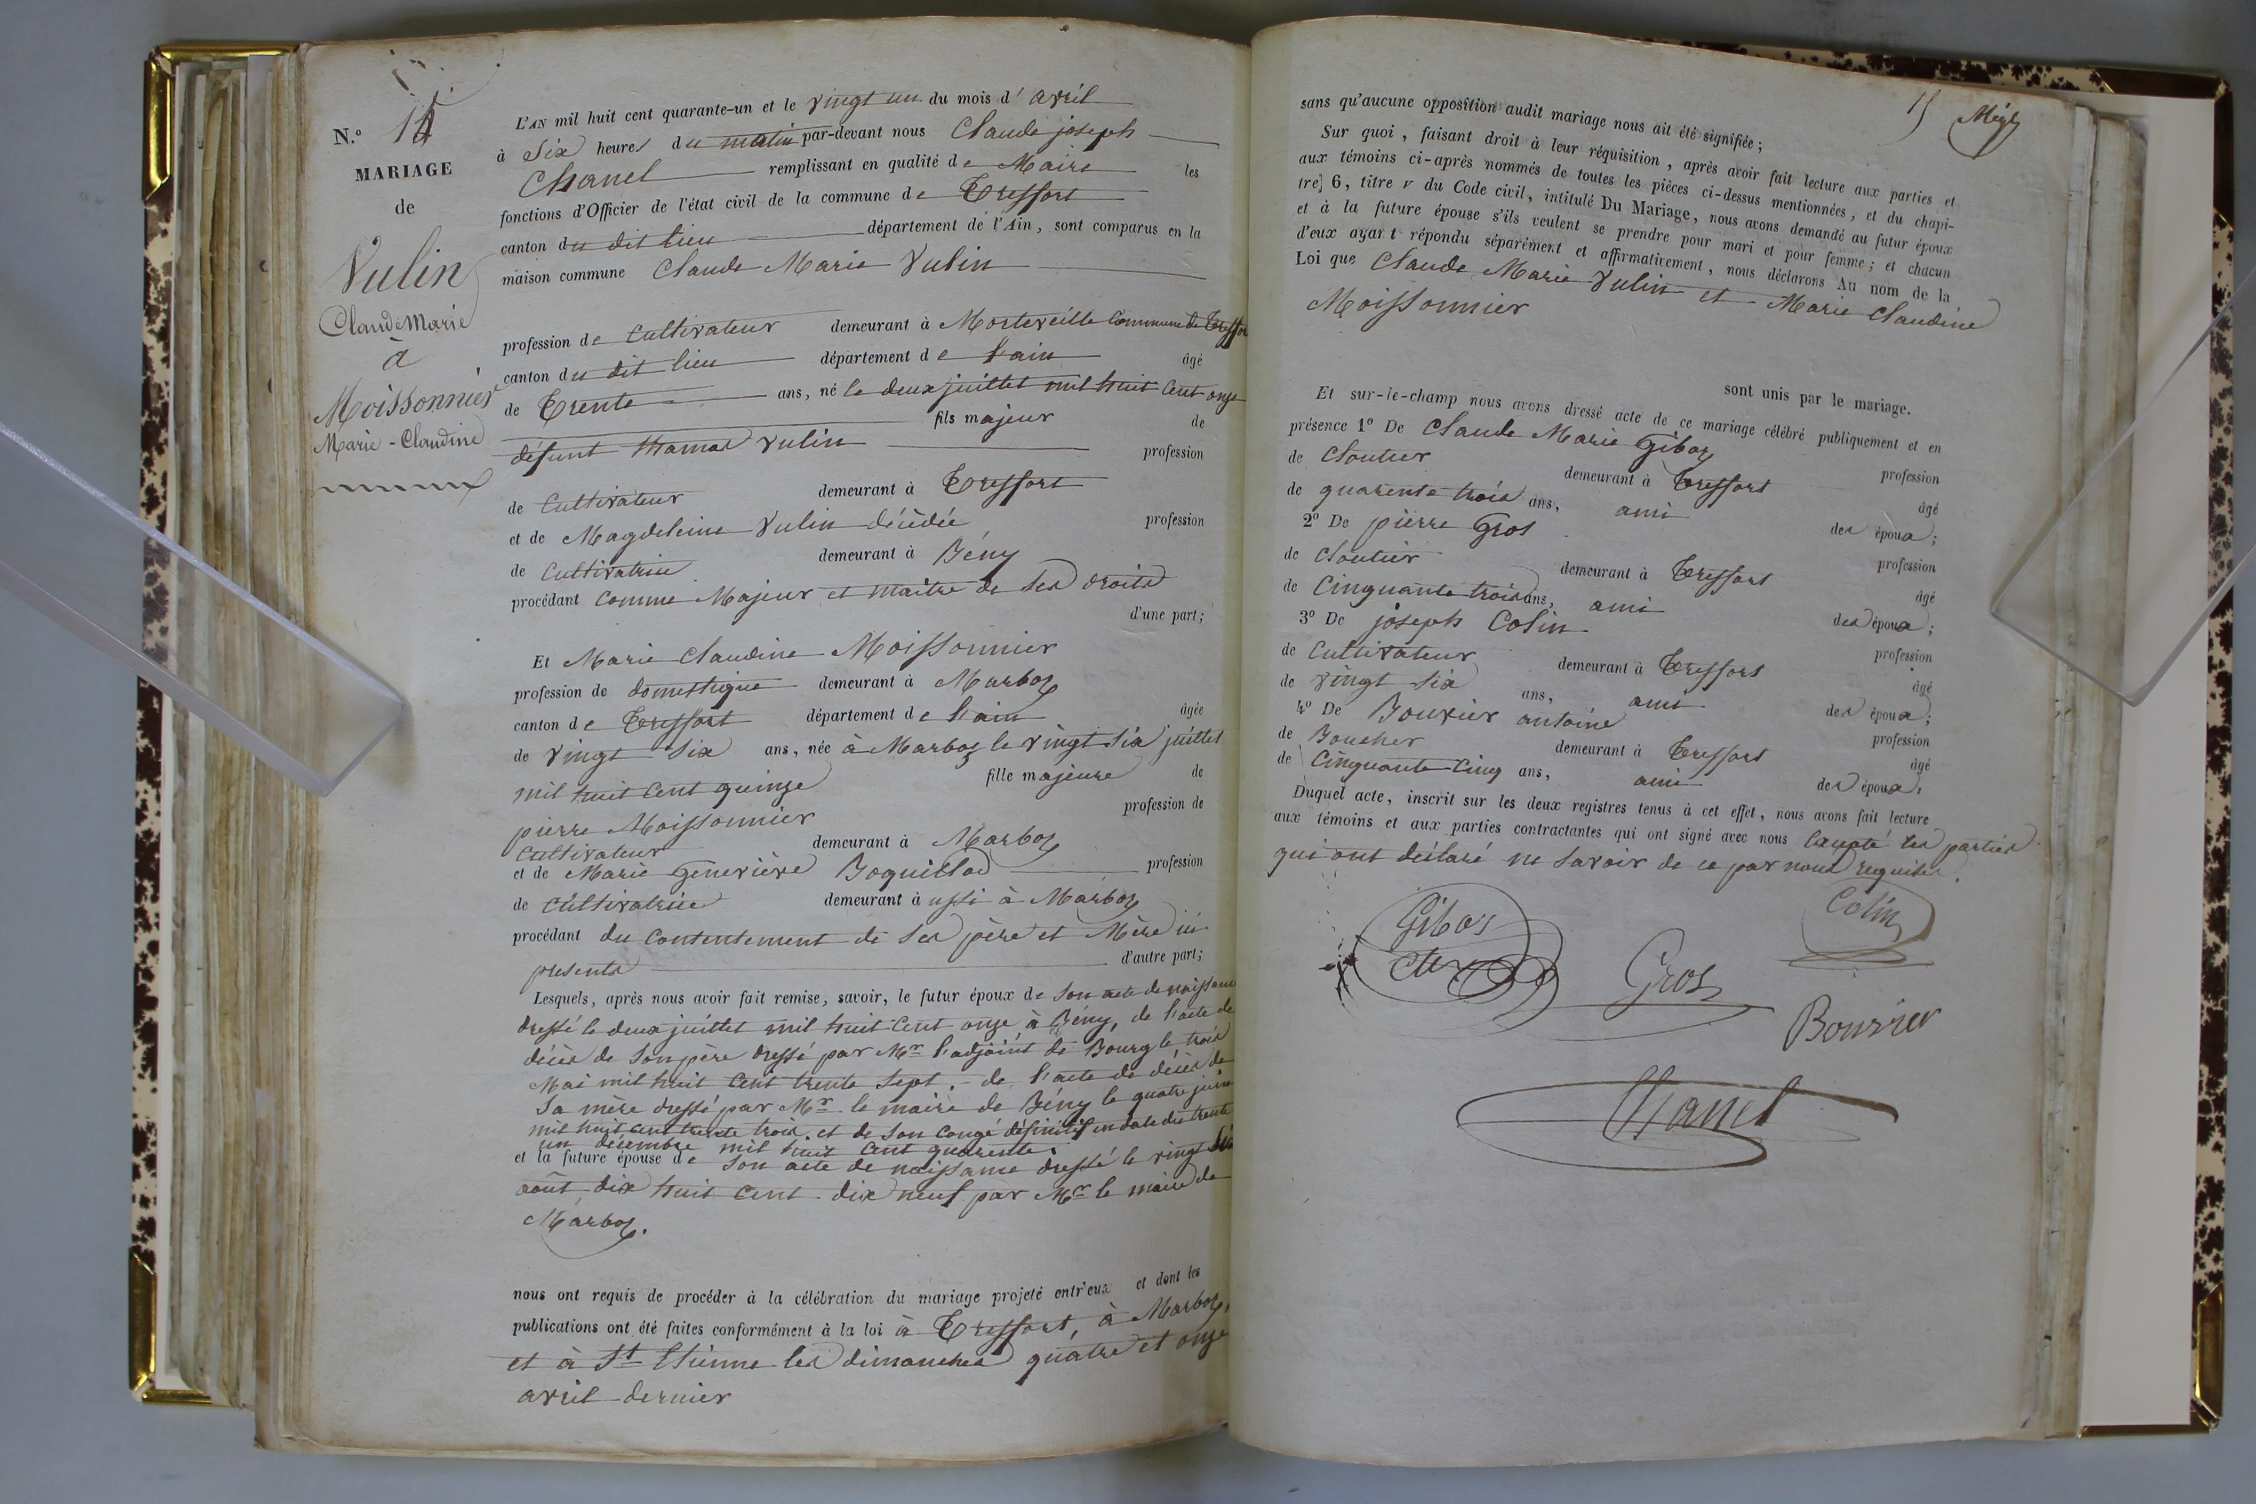 N.o 14
MARIAGE
de
Vulin
Claude Marie
à
Moissonnier
Marie-Claudine
L'AN mil huit cent quarante-un et le vingt un du mois d' avril
à Six heures du matin par-devant nous Claude joseph
Chanel remplissant en qualité de Maire les
fonctions d'Officier de l'état civil de la commune de Treffort
canton du dit lieu département de l'Ain, sont comparus en la
maison commune Claude Marie Vulin
profession de Cultivateur demeurant à Montereille Commune de Treffort
canton du dit lieu département de l'ain âgé
de Trente ans, né le deux juillet mil huit Cent onze
fils majeur de
défunt thomas Vulin profession
de Cultivateur demeurant à Treffort
et de Magdeleine Vulin décédée profession
de Cultivatrice demeurant à Bény
procédant comme Majeur et maitre de ses droits
d'une part;
Et Marie Claudine Moissonnier
profession de domestique demeurant à Marboz
canton de Treffort département de l'ain âgée
de vingt Six ans, née à Marboz le vingt six juillet
mil huit cent quinze fille majeure de
pierre Moissonnier profession de
Cultivateur demeurant à Marboz
et de Marie Genevière Boquillod profession
de Cultivatrice demeurant à ussi à Marboz
procédant du Consentement de ses père et Mère ici
presents d'autre part;
Lesquels, après nous avoir fait remise, savoir, le futur époux de son acte de naissance
dressé le deux juillet mil huit Cent onze à Bény, de l'acte de
décès de son père dressé par Mr l'adjoint de Bourg le trois
Mai mil huit cent trente sept. de l'acte de décès de
Sa mère dressé par Mr le maire de Bény le quatre juin
mil huit cent trente trois. et de son Congé définitif en date du trente
un décembre mil huit cent quarante.
et la future épouse de son acte de naissance dressé le vingt six
août dix huit cent dix neuf par Mr le maire de
Marboz.
nous ont requis de procéder à la célébration du mariage projeté entr'eux et dont les
publications ont été faites conformément à la loi à Treffort, à Marboz,
et à St Etienne les dimanches quatre et onze
avril dernier
15
sans qu'aucune opposition audit mariage nous ait été signifiée;
Sur quoi, faisant droit à leur réquisition, après avoir fait lecture aux parties et
aux témoins ci-après nommés de toutes les pièces ci-dessus mentionnées, et du chapi-
tre 6, titre v du Code civil, intitulé Du Mariage, nous avons demandé au futur époux
et à la future épouse s'ils veulent se prendre pour mari et pour femme; et chacun
d'eux ayant répondu séparément et affirmativement, nous déclarons Au nom de la
Loi que Claude Marie Vulin et Marie Claudine
Moissonnier
sont unis par le mariage.
Et sur-le-champ nous avons dressé acte de ce mariage célébré publiquement et en
présence 1° De Claude Marie Giboz profession
de Cloutier demeurant à Treffort âgé
de quarente trois ans, ami des époux;
2° De pierre Gros profession
de Cloutier demeurant à Treffort âgé
de Cinquante trois ans, ami des époux;
3° De joseph Colin profession
de Cultivateur demeurant à Treffort âgé
de vingt Six ans, ami des époux;
4° De Bouvier antoine profession
de Boucher demeurant à Treffort âgé
de Cinquante Cinq ans, ami des époux,
Duquel acte, inscrit sur les deux registres tenus à cet effet, nous avons fait lecture
aux témoins et aux parties contractantes qui ont signé avec nous Excepté les parties
qui ont déclaré ne savoir de ce par nous requises.
Gibos
Colin
Gros
Bouvier
Chanel